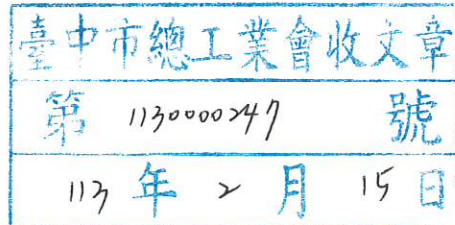 臺中市總工業會收文章
第 1130000247 號
113 年 2 月 15 日